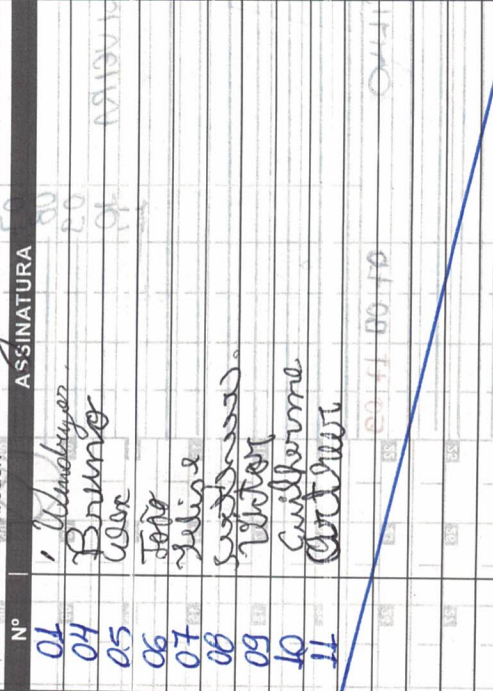 Nº ASSINATURA
01
04 Bruno
05 Alex
06 João
07 Felipe
08
09 Victor
10 Guilherme
11 Arthur